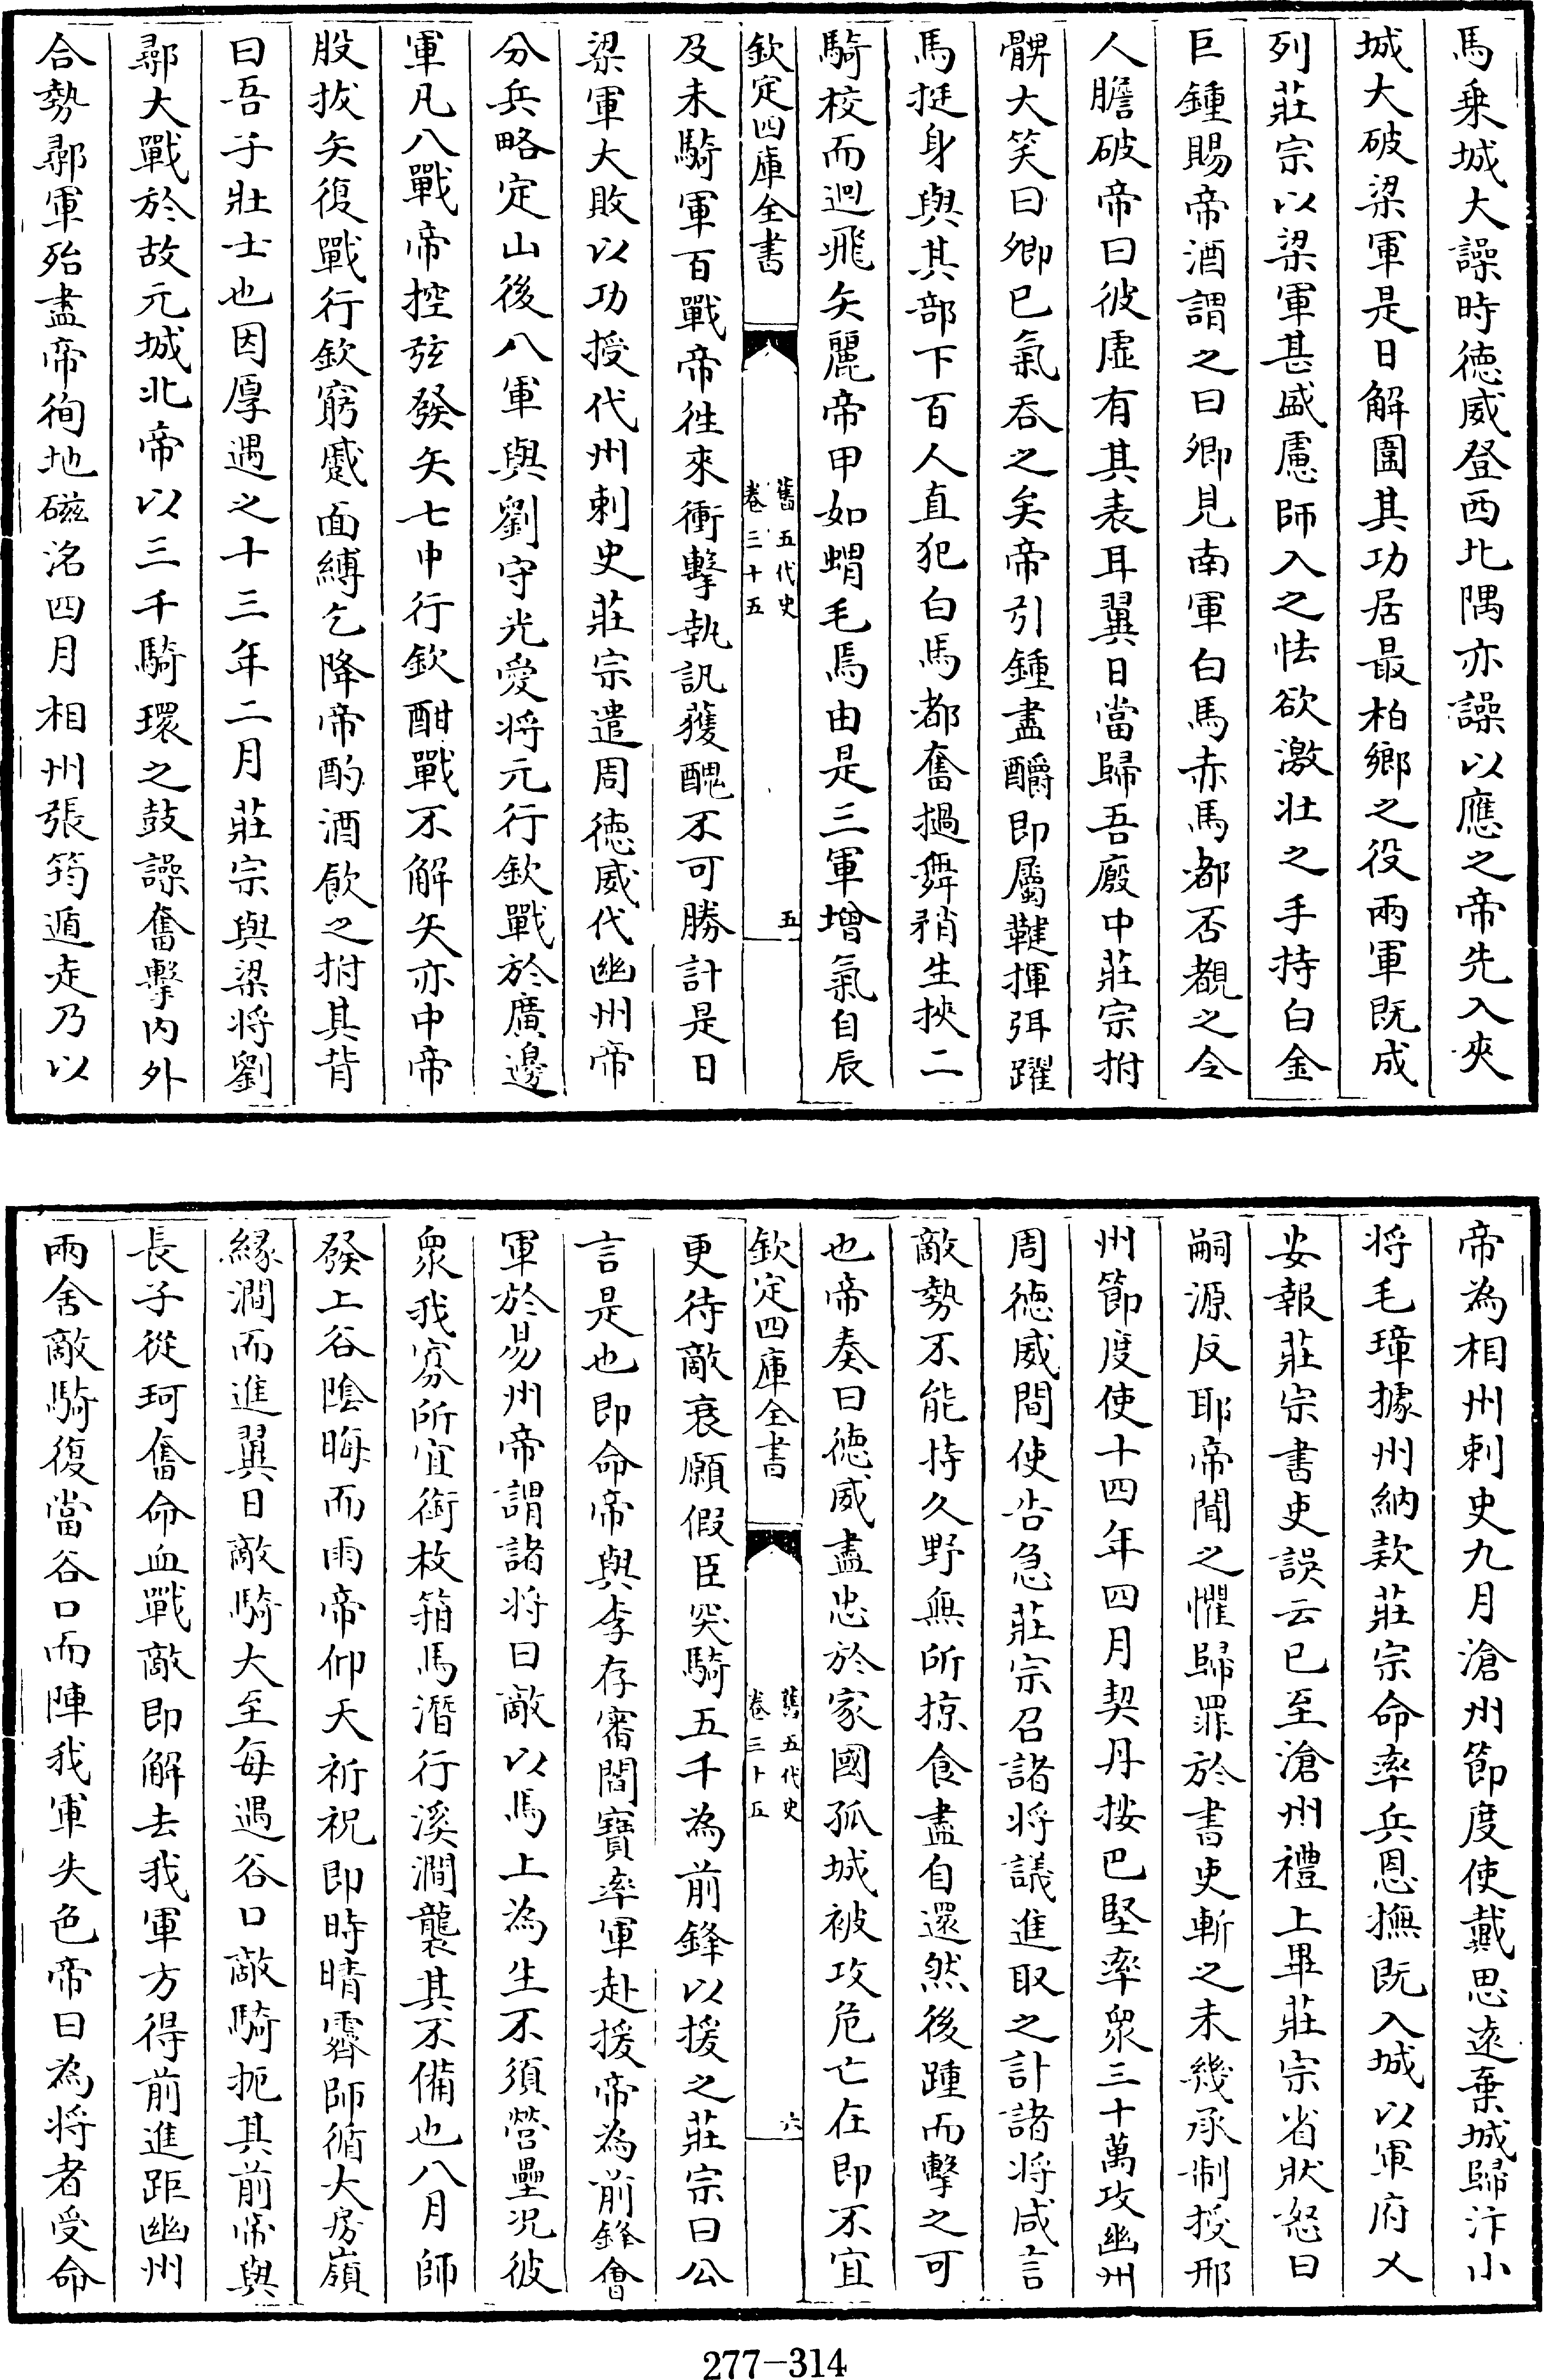 馬乗城大譟時徳威登西北隅亦譟以應之帝先入夾
城大破梁軍是日解圍其功居最柏鄉之役兩軍既成
列莊宗以梁軍甚盛慮師入之怯欲激壯之手持白金
巨鍾賜帝酒謂之曰卿見南軍白馬赤馬都否覩之令
人膽破帝曰彼虛有其表耳翼日當歸吾廄中莊宗拊
髀大笑曰卿已氣吞之矣帝引鍾盡釂即屬鞬揮弭躍
馬挺身與其部下百人直犯白馬都奮撾舞矟生挾二
騎校而迴飛矢麗帝甲如蝟毛焉由是三軍增氣自辰
欽定四庫全書
舊五代史
卷三十五
五
及未騎軍百戰帝徃來衝擊執訊獲醜不可勝計是日
梁軍大敗以功授代州刺史莊宗遣周徳威伐幽州帝
分兵略定山後八軍與劉守光愛将元行欽戰於廣邊
軍凡八戰帝控弦發矢七中行欽酣戰不解矢亦中帝
股拔矢復戰行欽窮蹙面縛乞降帝酌酒飲之拊其背
曰吾子壯士也因厚遇之十三年二月莊宗與梁将劉
鄩大戰於故元城北帝以三千騎環之鼓譟奮擊内外
合勢鄩軍殆盡帝徇地磁洺四月相州張筠遁走乃以
帝為相州刺史九月滄州節度使戴思遠棄城歸汴小
将毛璋據州納款莊宗命率兵慰撫既入城以軍府乂
安報莊宗書吏誤云已至滄州禮上畢莊宗省狀怒曰
嗣源反耶帝聞之懼歸罪於書吏斬之未幾承制授邢
州節度使十四年四月契丹按巴堅率衆三十萬攻幽州
周徳威間使告急莊宗召諸将議進取之計諸将咸言
敵勢不能持久野無所掠食盡自還然後踵而擊之可
也帝奏曰徳威盡忠於家國孤城被攻危亡在即不宜
欽定四庫全書
舊五代史
卷三十五
六
更待敵衰願假臣突騎五千為前鋒以援之莊宗曰公
言是也即命帝與李存審閻寶率軍赴援帝為前鋒會
軍於易州帝謂諸将曰敵以馬上為生不須營壘況彼
衆我寡所宜銜枚箝馬潛行溪澗襲其不備也八月師
發上谷陰晦而雨帝仰天祈祝即時晴霽師循大房嶺
緣澗而進翼日敵騎大至每遇谷口敵騎扼其前帝與
長子從珂奮命血戰敵即解去我軍方得前進距幽州
兩舍敵騎復當谷口而陣我軍失色帝曰為将者受命
277-314